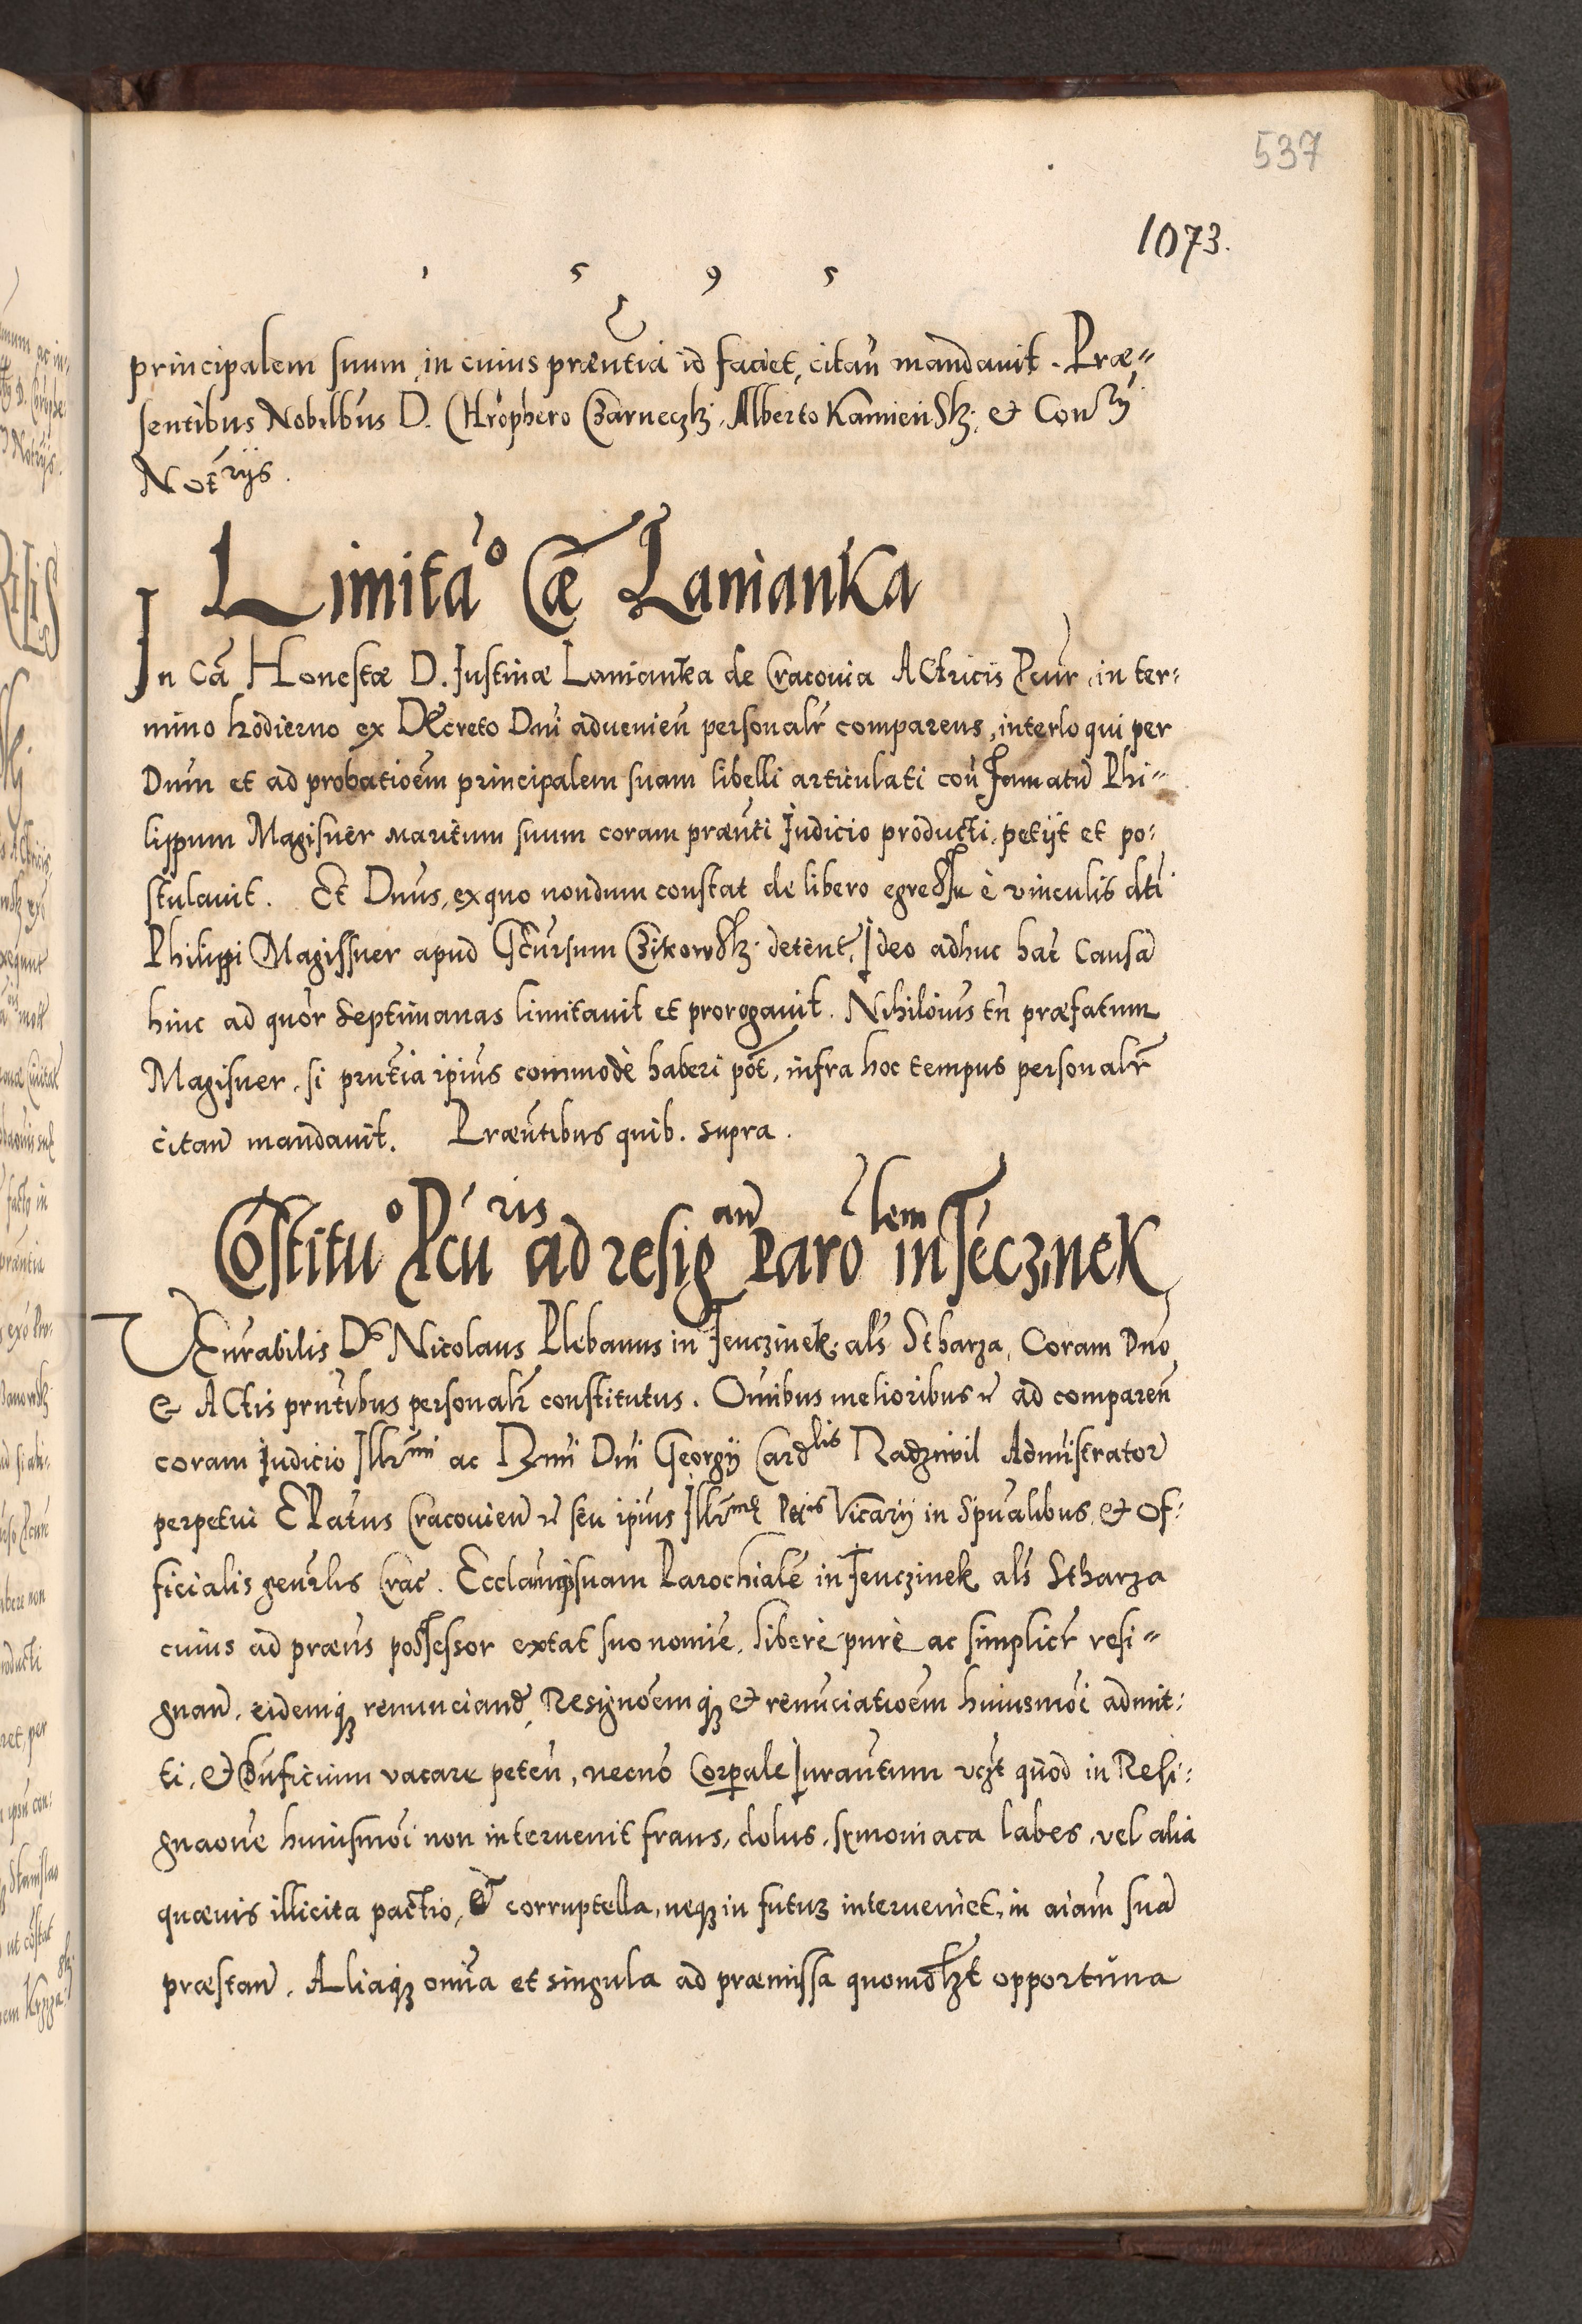 537
1073.
1 5 9 5
principalem suum, in cuius præntia id faciet, citan̄ mandavit. Præ„
sentibus Nobilbus D. Chrophero Czarneczk, Alberto Kamiensk; et Con
Not̄rijs.
Limita͂o Cæ Lanianka
In Cã Honestæ D. Iustinæ Lanianka de Cracovia Actricis Pcur, in ter:
mino hodierno ex Decreto Dni advenien̄ personalr̄ comparens, interloqui per
Dnm et ad probatioēm principalem suam libelli articulati con Phi„
lippum Magisner maritum suum coram prænti Iudicio producti, petijt et po:
stulavit. Et Dnus, ex quo nondum constat de libero egressu è vinculis dti
Philippi Magissner apud detent, Ideo adhuc hac Causā
hinc ad quor̄ septimanas limitavit et prorogavit. Nihiloīus tn̄ præfatum
Magisner, si prn̄tia ipius commodè haberi pōt, infra hoc tempus personalr̄
citan̄ mandavit. Præn̄tibus quib. supra.
Cōstitu͂o Pcu͂ris ad resigan̄ Paro͂lem in Teczinek
Venrabilis Ds Nicolaus Plebanus in Tenczinek als Stharza, Coram Dno
et Actis prn̄tibus personalr̄ constitutus. Omibus melioribus ad comparen̄
coram Iudicio Illr̄mi ac Rmi Dni Georgij Cardlis Radziwil Admistrator
perpetui EPatus Cracovien̄ seu ipius Illr̄mæ Vicarij in Spualibus, et Of:
ficialis genr̄lis Crac. Ecclam suam Parochialē in Tenczinek als Stharza
cuius ad præn̄s possessor extat suo nomie, liberè purè ac simplicr̄ resi„
gnan̄, eidemq3 renunciand, Resignoēmq3 et renuciatioēm huiusmōi admit:
ti, et Bn̄ficium vacare peten̄, necno Corpale Iuran̄tum vcz̄t quod in Resi:
gnaone huiusmōi non intervenit fraus, dolus, symoniaca labes, vel alia
quævis illicita pactio, et corruptella, neq3 in futur3 interveniet, in aiam suā
præstan̄. Aliaq3 omia et singula ad præmissa quomodlz̄t opportuna